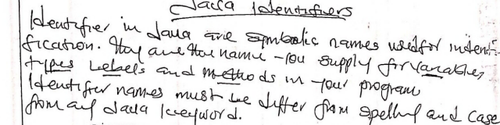 Java Identifiers
Identifier in Java are symbolic names used for indenti-
fication. They are the name you supply for variables,
types labels and methods in your program
Identifier names must be differ from spelling and case
from any Java keyword.